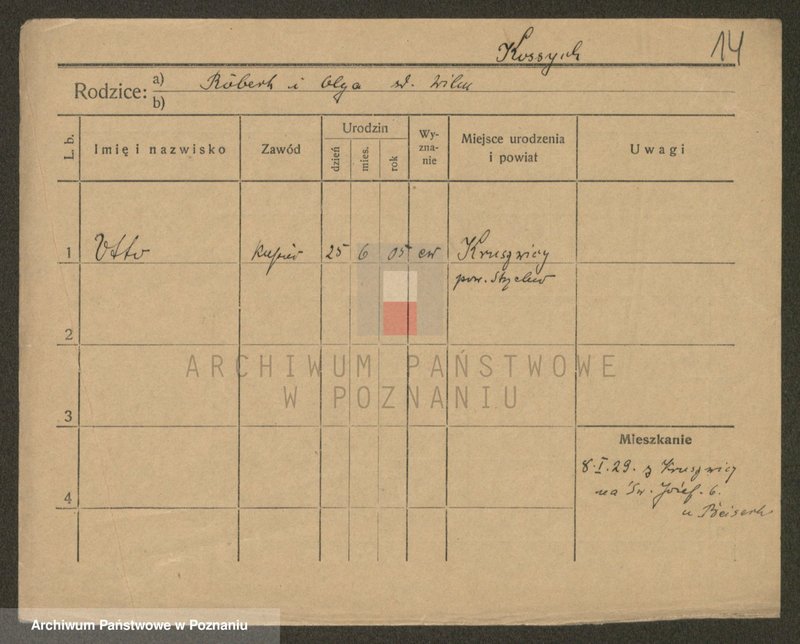 Kossych
14
Rodzice: a) Robert i Olga
b)
L. b.
Imię i nazwisko
Zawód
Urodzin
dzień
mies.
rok
Wy-
zna-
nie
Miejsce urodzenia
i powiat
Uwagi
1 Otto kupiec 25 6 05 ew Kruszwicy
pow.
2
ARCHIWUM PAŃSTWOWE
W POZNANIU
3
Mieszkanie
8.I.29. z Kruszwicy
na Św. Józef. 6.
u
4
Archiwum Państwowe w Poznaniu